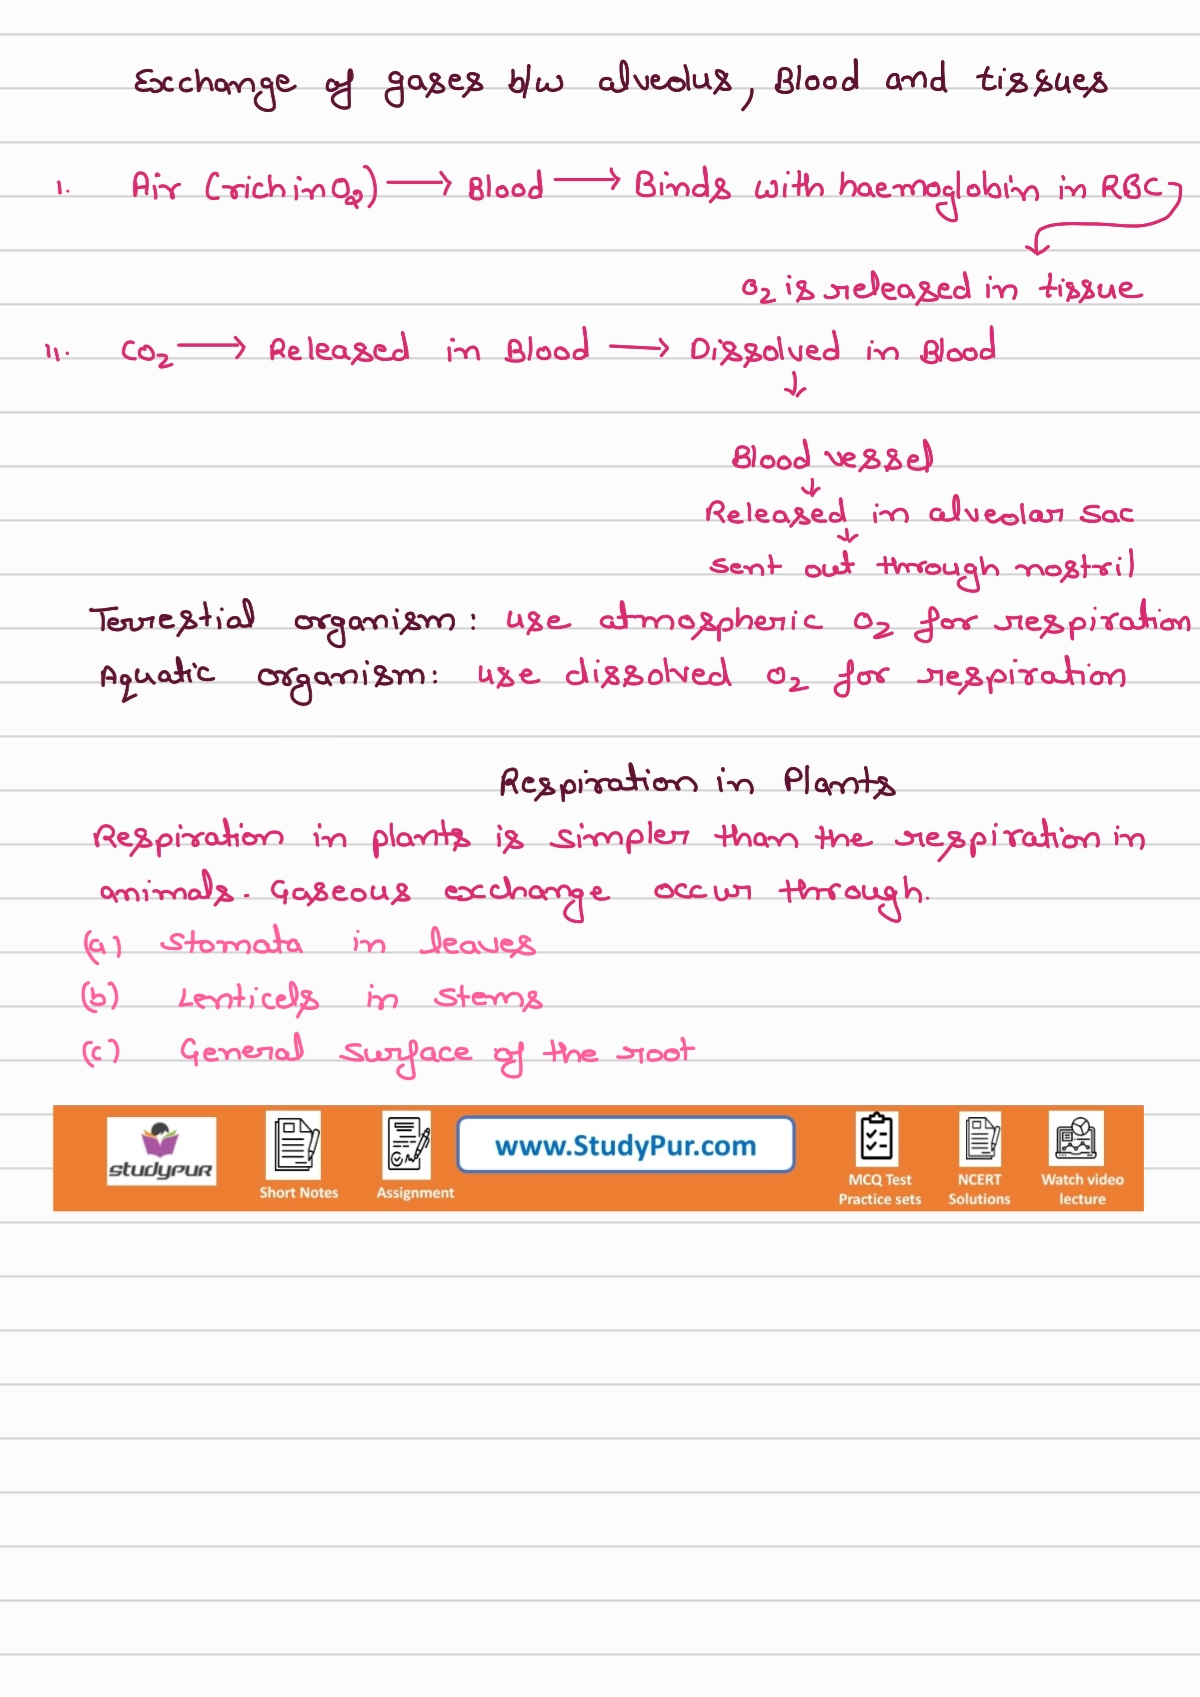 Exchange of gases b/w alveolus, Blood and tissues
1. Air (rich in O2) → Blood → Binds with haemoglobin in RBC
O2 is released in tissue
11. CO2 → Released in Blood → Dissolved in Blood
↓
Blood vessel
↓
Released in alveolar sac
↓
sent out through nostril
Terrestial organism: use atmospheric O2 for respiration
Aquatic organism: use dissolved O2 for respiration
Respiration in Plants
Respiration in plants is simpler than the respiration in
animals. Gaseous exchange occur through.
(a) Stomata in leaves
(b) Lenticels in stems
(c) General surface of the root
studypur
Short Notes
Assignment
www.StudyPur.com
MCQ Test
Practice sets
NCERT
Solutions
Watch video
lecture